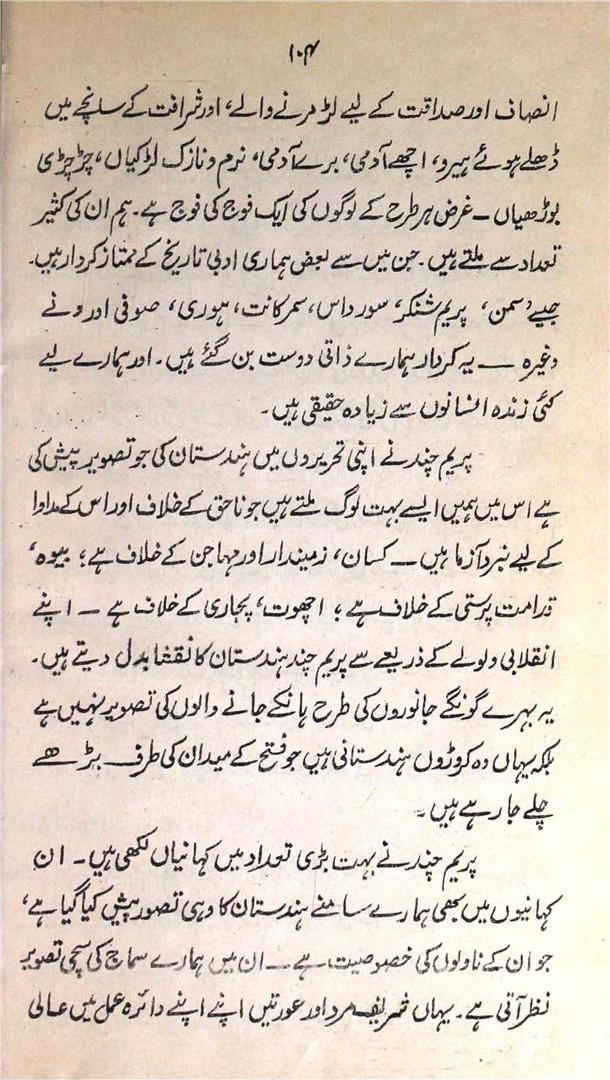 ۱۰۴
انصاف اور صداقت کے لیے لڑ مرنے والے، اور شرافت کے سانچے میں
ڈھلے ہوئے ہیرو، اچھے آدمی، برے آدمی، نرم و نازک لڑکیاں، چڑچڑی
بوڑھیاں — غرض ہر طرح کے لوگوں کی ایک فوج کی فوج ہے۔ ہم ان کی کثیر
تعداد سے ملتے ہیں۔ جن میں سے بعض ہماری ادبی تاریخ کے ممتاز کردار ہیں۔
جیسے سمن، پریم شنکر، سورداس، سمرکانت، ہوری، صوفی اور ونے
وغیرہ — یہ کردار ہمارے ذاتی دوست بن گئے ہیں۔ اور ہمارے لیے
کئی زندہ انسانوں سے زیادہ حقیقی ہیں۔
پریم چند نے اپنی تحریروں میں ہندستان کی جو تصویر پیش کی
ہے اس میں ہمیں ایسے بہت لوگ ملتے ہیں جو ناحق کے خلاف اور اس کے مداوا
کے لیے نبرد آزما ہیں — کسان، زمیندار اور مہاجن کے خلاف ہے؛ بیوہ،
قدامت پرستی کے خلاف ہے؛ اچھوت، پجاری کے خلاف ہے — اپنے
انقلابی ولولے کے ذریعے سے پریم چند ہندستان کا نقشا بدل دیتے ہیں۔
یہ بہرے گونگے جانوروں کی طرح ہانکے جانے والوں کی تصویر نہیں ہے
بلکہ یہاں وہ کروڑوں ہندستانی ہیں جو فتح کے میدان کی طرف بڑھے
چلے جا رہے ہیں۔
پریم چند نے بہت بڑی تعداد میں کہانیاں لکھی ہیں۔ ان
کہانیوں میں بھی ہمارے سامنے ہندستان کا وہی تصور پیش کیا گیا ہے،
جو ان کے ناولوں کی خصوصیت ہے — ان میں ہمارے سماج کی سچی تصویر
نظر آتی ہے۔ یہاں شریف مرد اور عورتیں اپنے اپنے دائرہ عمل میں عالی